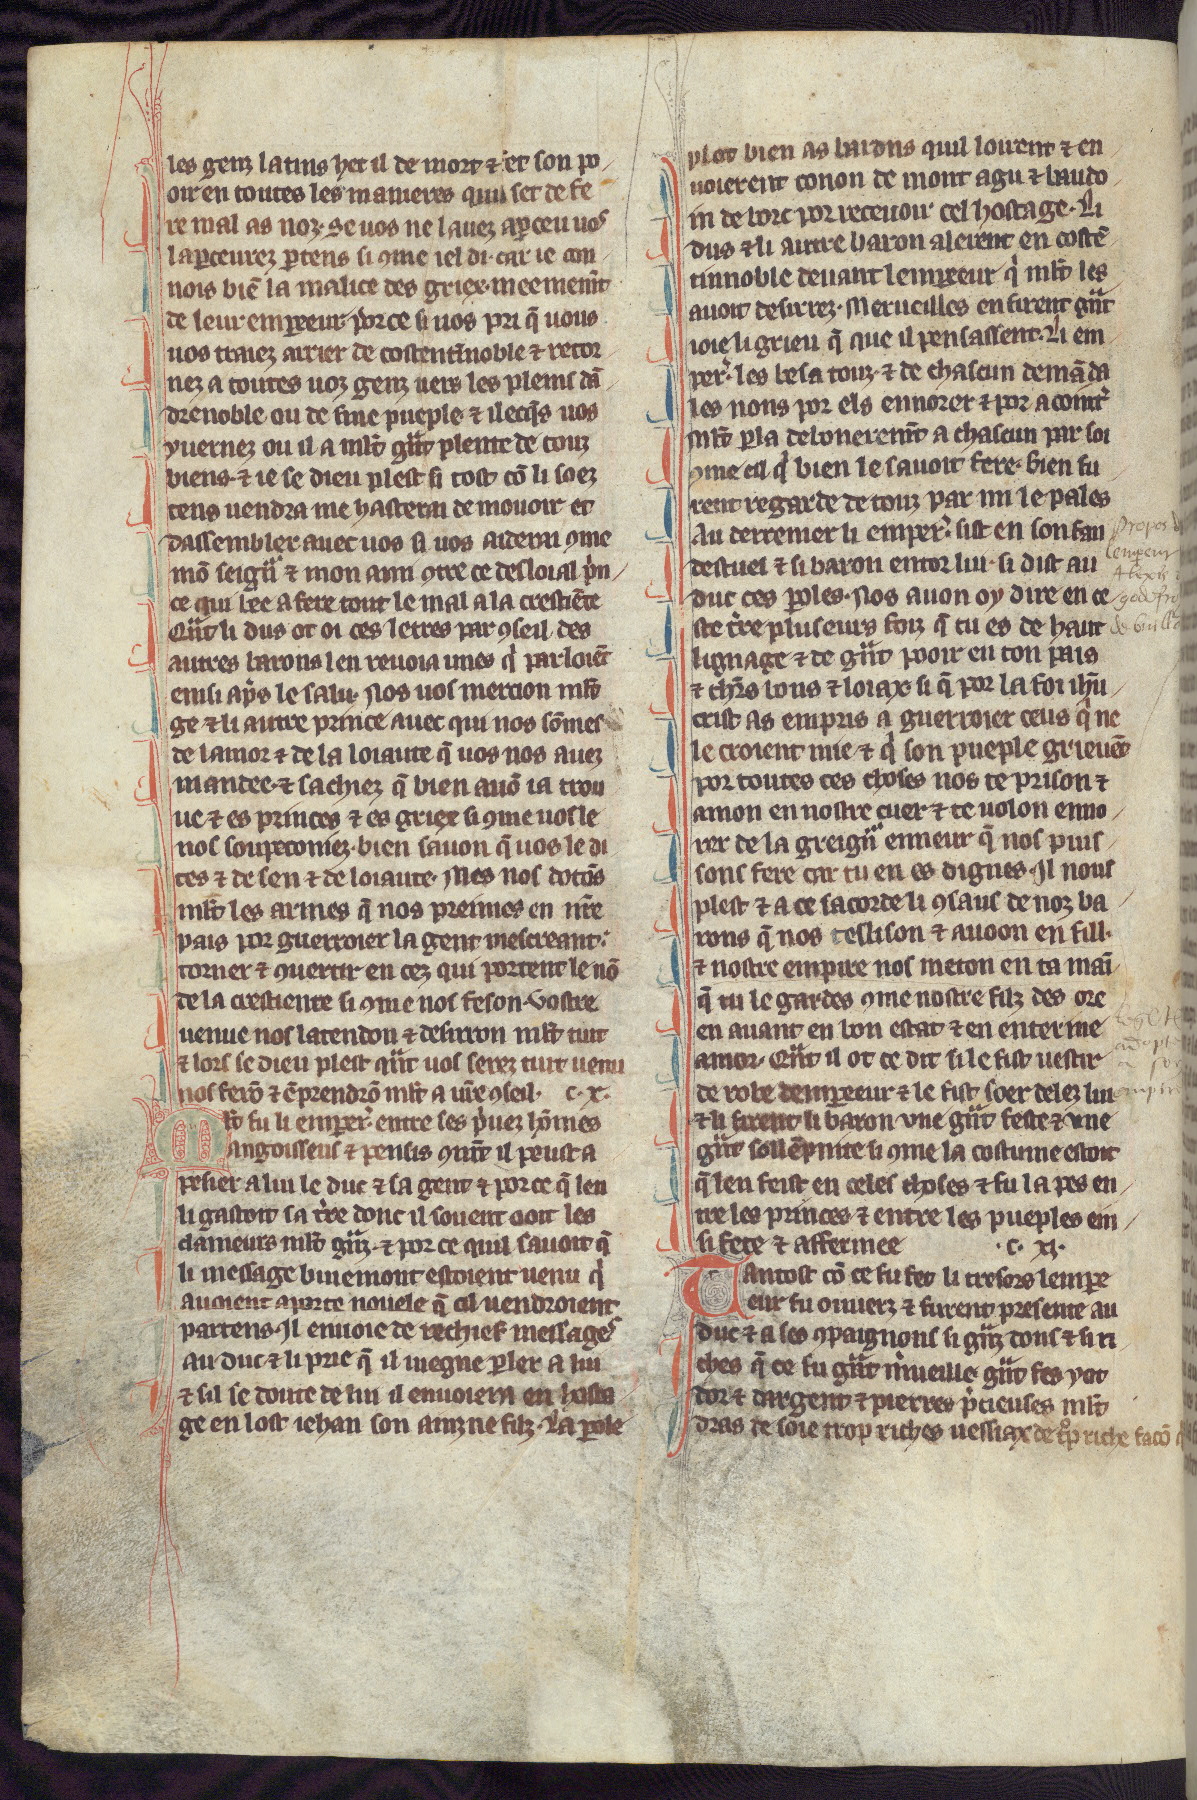 les genz latins het il de mort ⁊ et son po
oir en toutes les manieres quil set de fe
re mal as noz. Se uos ne lauez aꝑceu uos
laꝑceurez ꝑ tens si ꝯme iel di. car ie con
nois biẽ la malice des griex. meememt̃
de leur emꝑeeur. por ce si uos pri q̃ uous
uos traiez arrier de costentĩnoble ⁊ retor
nez a toutes uoz genz uers les plains dã
drenoble ou de fine pueple ⁊ ilecq̃s uos
yuernez ou il a ml̃t gr̃t plente de touz
biens. ⁊ ie se dieu plest si tost cõ li soez
tens uendra me hasterai de mouoir et
dassembler auec uos si uos aiderai ꝯme
mõ seigr̃ ⁊ mon ami ꝯtre ce desloial p̃n
ce qui lee a fere tout le mal a la crestiẽte
Qñt li dus ot oi ces letres par ꝯseil des
autres barons len renuoia unes q̃ parloiẽt
ensi ap̃s le salu. Nos uos mercion ml̃t
ge ⁊ li autre prince auec qui nos sõmes
de lamor ⁊ de la loiaute q̃ uos nos auez
mandee. ⁊ sachiez q̃ bien auõ ia trou
ue ⁊ es princes ⁊ es griex si ꝯme uos le
nos soupeconiez. bien sauon q̃ uos le di
tes ⁊ de sen ⁊ de loiaute. Mes nos dotõs
ml̃t les armes q̃ nos preimes en nr̃e
pais por guerroier la gent mescreant.
torner ⁊ ꝯuertir en cez qui portent le nõ
de la crestiente si ꝯme nos feson. Vostre
uenue nos latendon ⁊ desirron ml̃t tuit
⁊ lors se dieu plest qñt uos serez tuit uenu
nos ferõ ⁊ ẽprendrõ ml̃t a ur̃e ꝯseil. c. x.
Ml̃t fu li emper̃. entre ses p̃uez hõmes
angoisseus ⁊ pensis ꝯmt̃ il peust a
pesier a lui le duc ⁊ sa gent ⁊ por ce q̃ len
li gastoit sa t̃re donc il souent ooit les
clameurs ml̃t gr̃z. ⁊ por ce quil sauoit q̃
li message buiemont estoient uenu q̃
auoient aporte nouele q̃ cil uendroient
par tens. Il enuoie de rechief messages
au duc ⁊ li prie q̃ il uiegne ꝑler a lui
⁊ sil se doute de lui il enuoiera en hosta
ge en lost iehan son ainzne filz. La ꝑole
plot bien as barons quil loierent ⁊ en
uoierent conon de mont agu ⁊ baudo
in de borc por receuoir cel hostage. Li
dus ⁊ li autre baron alerent en costẽ
tinnoble deuant lemꝑeeur q̃ ml̃t les
auoit desirrez. Merueilles en firent gñt
ioie li grieu q̃ que il pensassent. Li em
per̃. les besa touz. ⁊ de chascun demãda
les nons por els ennorer ⁊ por acontr̃
Ml̃t ꝑla debonerement a chascun par soi
ꝯme cil q̃ bien le sauoit fere. bien fu
rent regarde de touz par mi le pales
Au derrenier li emper̃. sist en son fau
destuel ⁊ si baron entor lui. si dist au
duc ces ꝑoles. Nos auon oy dire en ce
ste t̃re pluseurs foiz q̃ tu es de haut
lignage ⁊ de gñt pooir en ton pais
⁊ chr̃s bons ⁊ loiax si q̃ por la foi ihũ
crist as empris a guerroier ceus q̃ ne
le croient mie ⁊ q̃ son pueple grieuẽt
por toutes ces choses nos te prison ⁊
amon en nostre cuer ⁊ te uolon enno
rer de la greigñ enneur q̃ nos puis
sons fere car tu en es dignes. Il nous
plest ⁊ a ce sacorde li ꝯsaus de noz ba
rons q̃ nos teslison ⁊ auoon en fill.
⁊ nostre empire nos meton en ta mai
q̃ tu le gardes ꝯme nostre filz des ore
en auant en bon estat ⁊ en enterine
amor. Qñt il ot ce dit si le fist uestir
de robe dempeeur ⁊ le fist soer delez lui
⁊ li firent li baron vne gñt feste ⁊ vne
gñt sollẽpnite si ꝯme la costume estoit
q̃ len feist en celes choses ⁊ fu la pes en
tre les princes ⁊ entre les pueples ein
si fete ⁊ affermee .c. xi.
Tantost cõ ce fu fet li tresors lempe
eur fu ouuerz ⁊ furent presente au
duc ⁊ a ses ꝯpaignons si gr̃z dons ⁊ si ri
ches q̃ ce fu gñt m̃ueille. gñt fes yot
dor ⁊ dargent ⁊ pierres p̃cieuses ml̃t
dras de soie trop riches uessiax de trop riche facõ
Propos
lempeur
Alexis
godefroi
de buill
adopte
empire